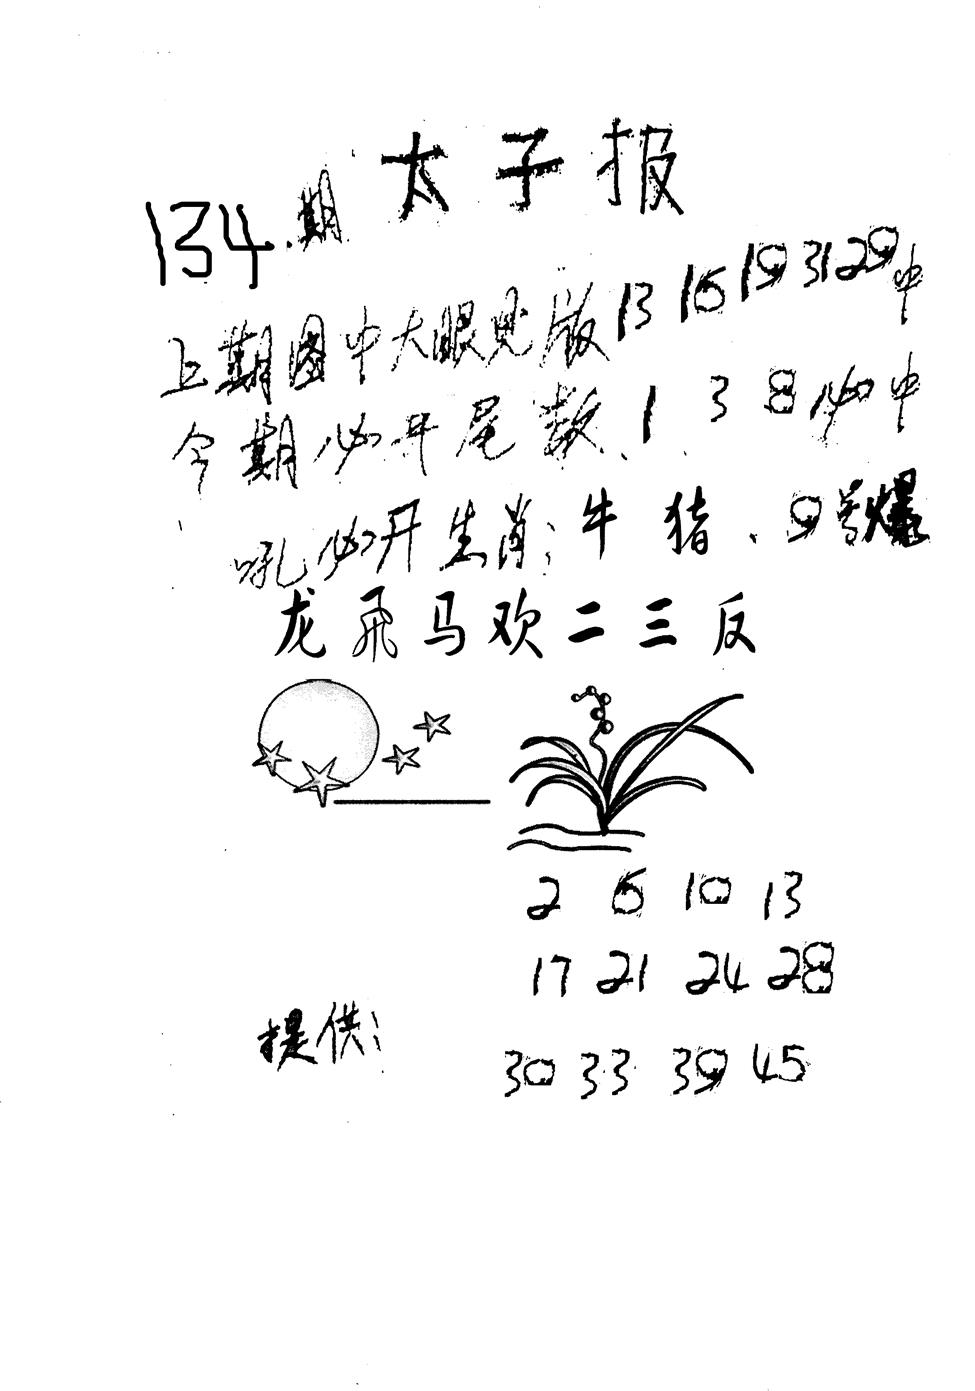 太子报
134.期
上期图中大眼见版13 16 19 31 29中
今期必开尾数.1 3 8必中
吼必开生肖:牛 猪、9号爆
龙飛马欢二三反
2 6 10 13
17 21 24 28
提供:
30 33 39 45